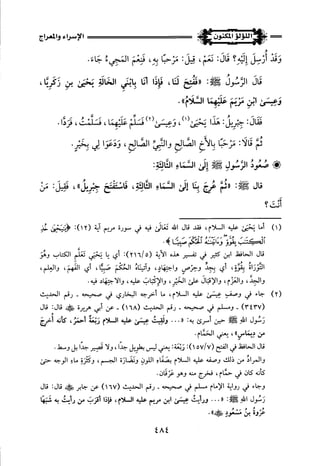 اللؤلؤ المكنون
الإسراء والمعراج
وَقَدْ أُرْسِلَ إِلَيْهِ؟ قَالَ: نَعَمْ، قِيلَ: مَرْحَبًا بِهِ، فَنِعْمَ الْمَجِيءُ جَاءَ.
قَالَ الرَّسُولُ ﷺ: «فَفُتِحَ لَنَا، فَإِذَا أَنَا بِابْنَيِ الْخَالَةِ يَحْيَى بْنِ زَكَرِيَّا،
وَعِيسَى ابْنِ مَرْيَمَ عَلَيْهِمَا السَّلَامُ».
فَقَالَ: جِبْرِيلُ: هَذَا يَحْيَى(١)، وَعِيسَى(٢) فَسَلِّمْ عَلَيْهِمَا، فَسَلَّمْتُ، فَرَدَّا.
ثُمَّ قَالَا: مَرْحَبًا بِالْأَخِ الصَّالِحِ وَالنَّبِيِّ الصَّالِحِ، وَدَعَوَا لِي بِخَيْرٍ.
صُعُودُ الرَّسُولِ ﷺ إِلَى السَّمَاءِ الثَّالِثَةِ:
قَالَ ﷺ: «ثُمَّ عُرِجَ بِنَا إِلَى السَّمَاءِ الثَّالِثَةِ، فَاسْتَفْتَحَ جِبْرِيلُ»، فَقِيلَ: مَنْ
أَنْتَ؟
(١) أما يحيى عليه السلام، فقد قال الله تعالى فيه في سورة مريم آية (١٢): ﴿يَٰيَحْيَىٰ خُذِ
الْكِتَٰبَ بِقُوَّةٍ وَءَاتَيْنَٰهُ الْحُكْمَ صَبِيًّا﴾.
قال الحافظ ابن كثير في تفسير هذه الآية (٢١٦/٥): أي يا يحيى تعلم الكتاب وهو
التوراة بقوة، أي بجد وحرص واجتهاد، وآتيناه الحكم صبيًّا، أي الفهم، والعلم،
والجد، والعزم، والإقبال على الخير، والإكباب عليه، والاجتهاد فيه.
(٢) جاء في وصف عيسى عليه السلام، ما أخرجه البخاري في صحيحه - رقم الحديث
(٣٤٣٧) - ومسلم في صحيحه - رقم الحديث (١٦٨) - عن أبي هريرة ﷺ قال: قال
رسول الله ﷺ حين أسري به: «... ولقيت عيسى عليه السلام رَبْعَةً أحمر، كأنه أخرج
من ديماس»، يعني الحمام.
قال الحافظ في الفتح (١٥٧/٧): رَبْعَة: يعني ليس بطويل جدًا، ولا قصير جدًا بل وسط.
والمراد من ذلك وصفه عليه السلام بصفاء اللون ونضارة الجسم، وكثرة ماء الوجه حتى
كأنه كان في حمام، فخرج منه وهو عرقان.
وجاء في رواية الإمام مسلم في صحيحه - رقم الحديث (١٦٧) عن جابر ﷺ قال: قال
رسول الله ﷺ: «... ورأيت عيسى ابن مريم عليه السلام، فإذا أقرب من رأيت به شبهًا
عروة بن مسعود ﷺ».
٤٨٤